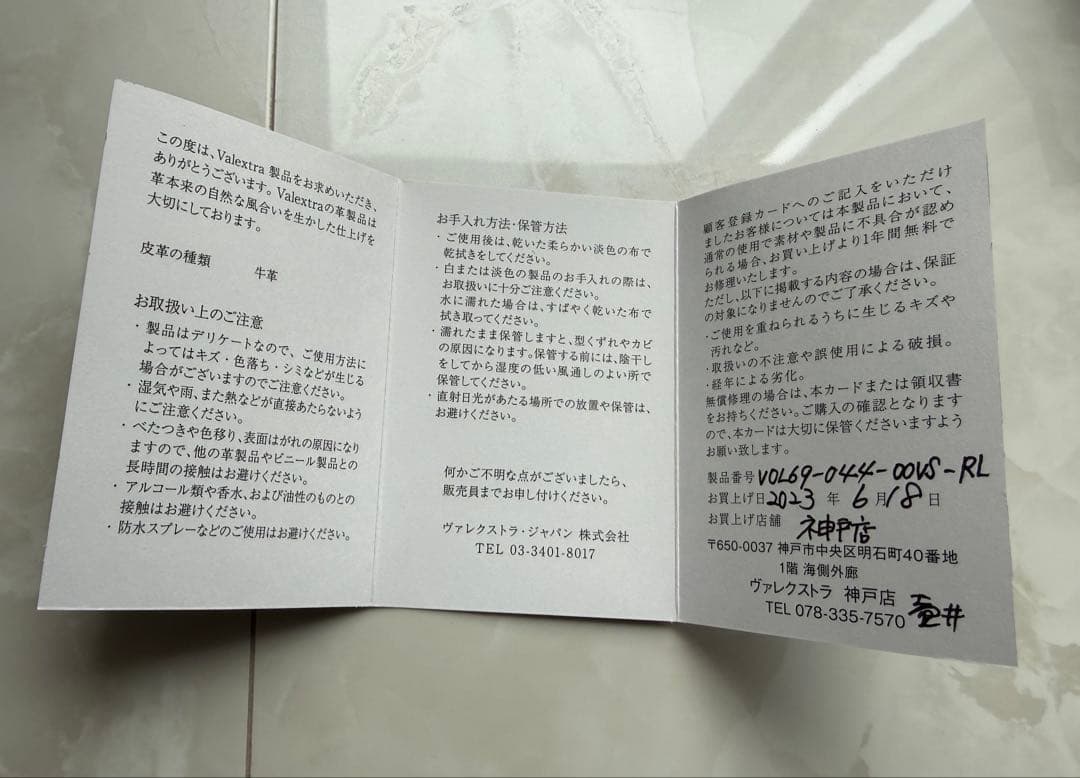 この度は、Valextra 製品をお求めいただき、
ありがとうございます。Valextraの革製品は
革本来の自然な風合いを生かした仕上げを
大切にしております。
皮革の種類　牛革
お取扱い上のご注意
・製品はデリケートなので、ご使用方法に
よってはキズ・色落ち・シミなどが生じる
場合がございますのでご注意ください。
・湿気や雨、また熱などが直接あたらないよう
にご注意ください。
・べたつきや色移り、表面はがれの原因になり
ますので、他の革製品やビニール製品との
長時間の接触はお避けください。
・アルコール類や香水、および油性のものとの
接触はお避けください。
・防水スプレーなどのご使用はお避けください。
お手入れ方法・保管方法
・ご使用後は、乾いた柔らかい淡色の布で
乾拭きをしてください。
・白または淡色の製品のお手入れの際は、
お取扱いに十分ご注意ください。
水に濡れた場合は、すばやく乾いた布で
拭き取ってください。
・濡れたまま保管しますと、型くずれやカビ
の原因になります。保管する前には、陰干し
をしてから湿度の低い風通しのよい所で
保管してください。
・直射日光があたる場所での放置や保管は、
お避けください。
何かご不明な点がございましたら、
販売員までお申し付けください。
ヴァレクストラ・ジャパン 株式会社
TEL 03-3401-8017
顧客登録カードへのご記入をいただけ
ましたお客様については本製品において、
通常の使用で素材や製品に不具合が認め
られる場合、お買い上げより1年間無料で
お修理いたします。
ただし、以下に掲載する内容の場合は、保証
の対象になりませんのでご了承ください。
・ご使用を重ねられるうちに生じるキズや
汚れなど。
・取扱いの不注意や誤使用による破損。
・経年による劣化。
無償修理の場合は、本カードまたは領収書
をお持ちください。ご購入の確認となります
ので、本カードは大切に保管くださいますよう
お願い致します。
製品番号 V0L69-044-00VS-RL
お買上げ日 2023 年 6 月 18 日
お買上げ店舗 神戸店
〒650-0037 神戸市中央区明石町40番地
1階 海側外廊
ヴァレクストラ 神戸店
TEL 078-335-7570